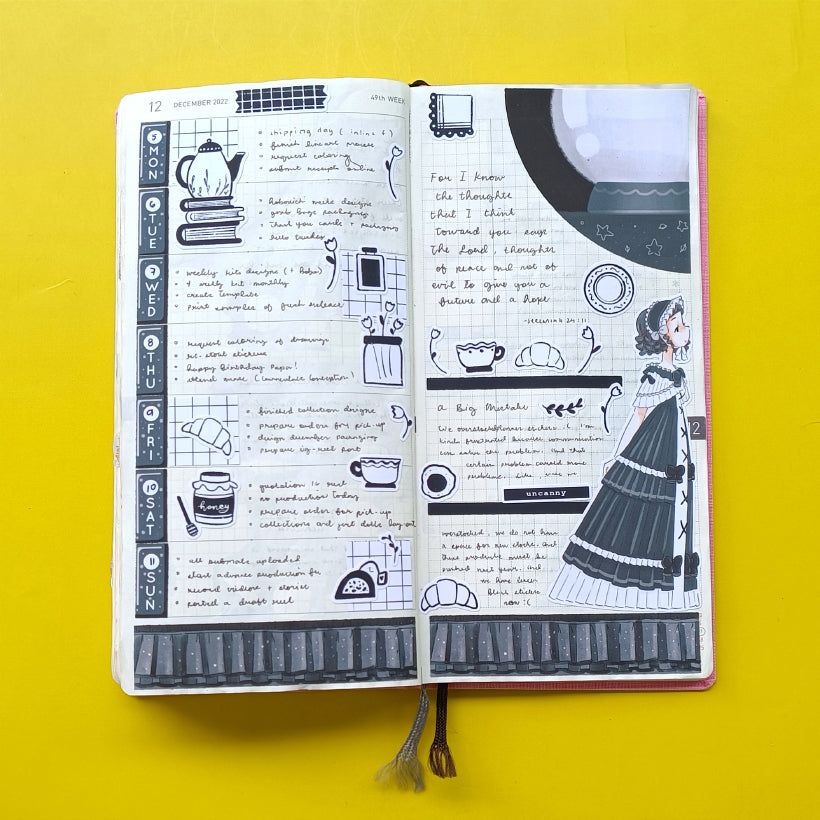 12 DECEMBER 2022 49th WEEK
5 MON
shipping day (inline 6)
finish lineart process
request coloring
submit receipts online
6 TUE
designs
packaging
Thank you cards + packaging
hello
7 WED
weekly kits designs (+ Hobo)
+ weekly kit monthly
create template
print samples of fresh release
8 THU
request coloring of drawings
re-stock stickers
happy Birthday Papa!
attend mass (Immaculate Conception)
9 FRI
finished collection designs
prepare orders for pick-up
design december packaging
prepare ig-reel post
10 SAT
honey
quotation is sent
no production today
prepare order for pick-up
collections and
11 SUN
all automate uploaded
start advance production for
record videos + stories
posted a draft reel
For I know
the thoughts
that I think
toward you says
the Lord, thoughts
of peace and not of
evil to give you a
future and a hope
-Jeremiah 29:11
a Big Mistake
We overstocked planner stickers. I'm
kinda frustrated because communication
can solve the problem. And that
certain problem caused more
problems. Like
uncanny
overstocked, we do not have
a space for new stocks. And
these products must be
next year. And,
we have less
Blank sticker
now :(
12